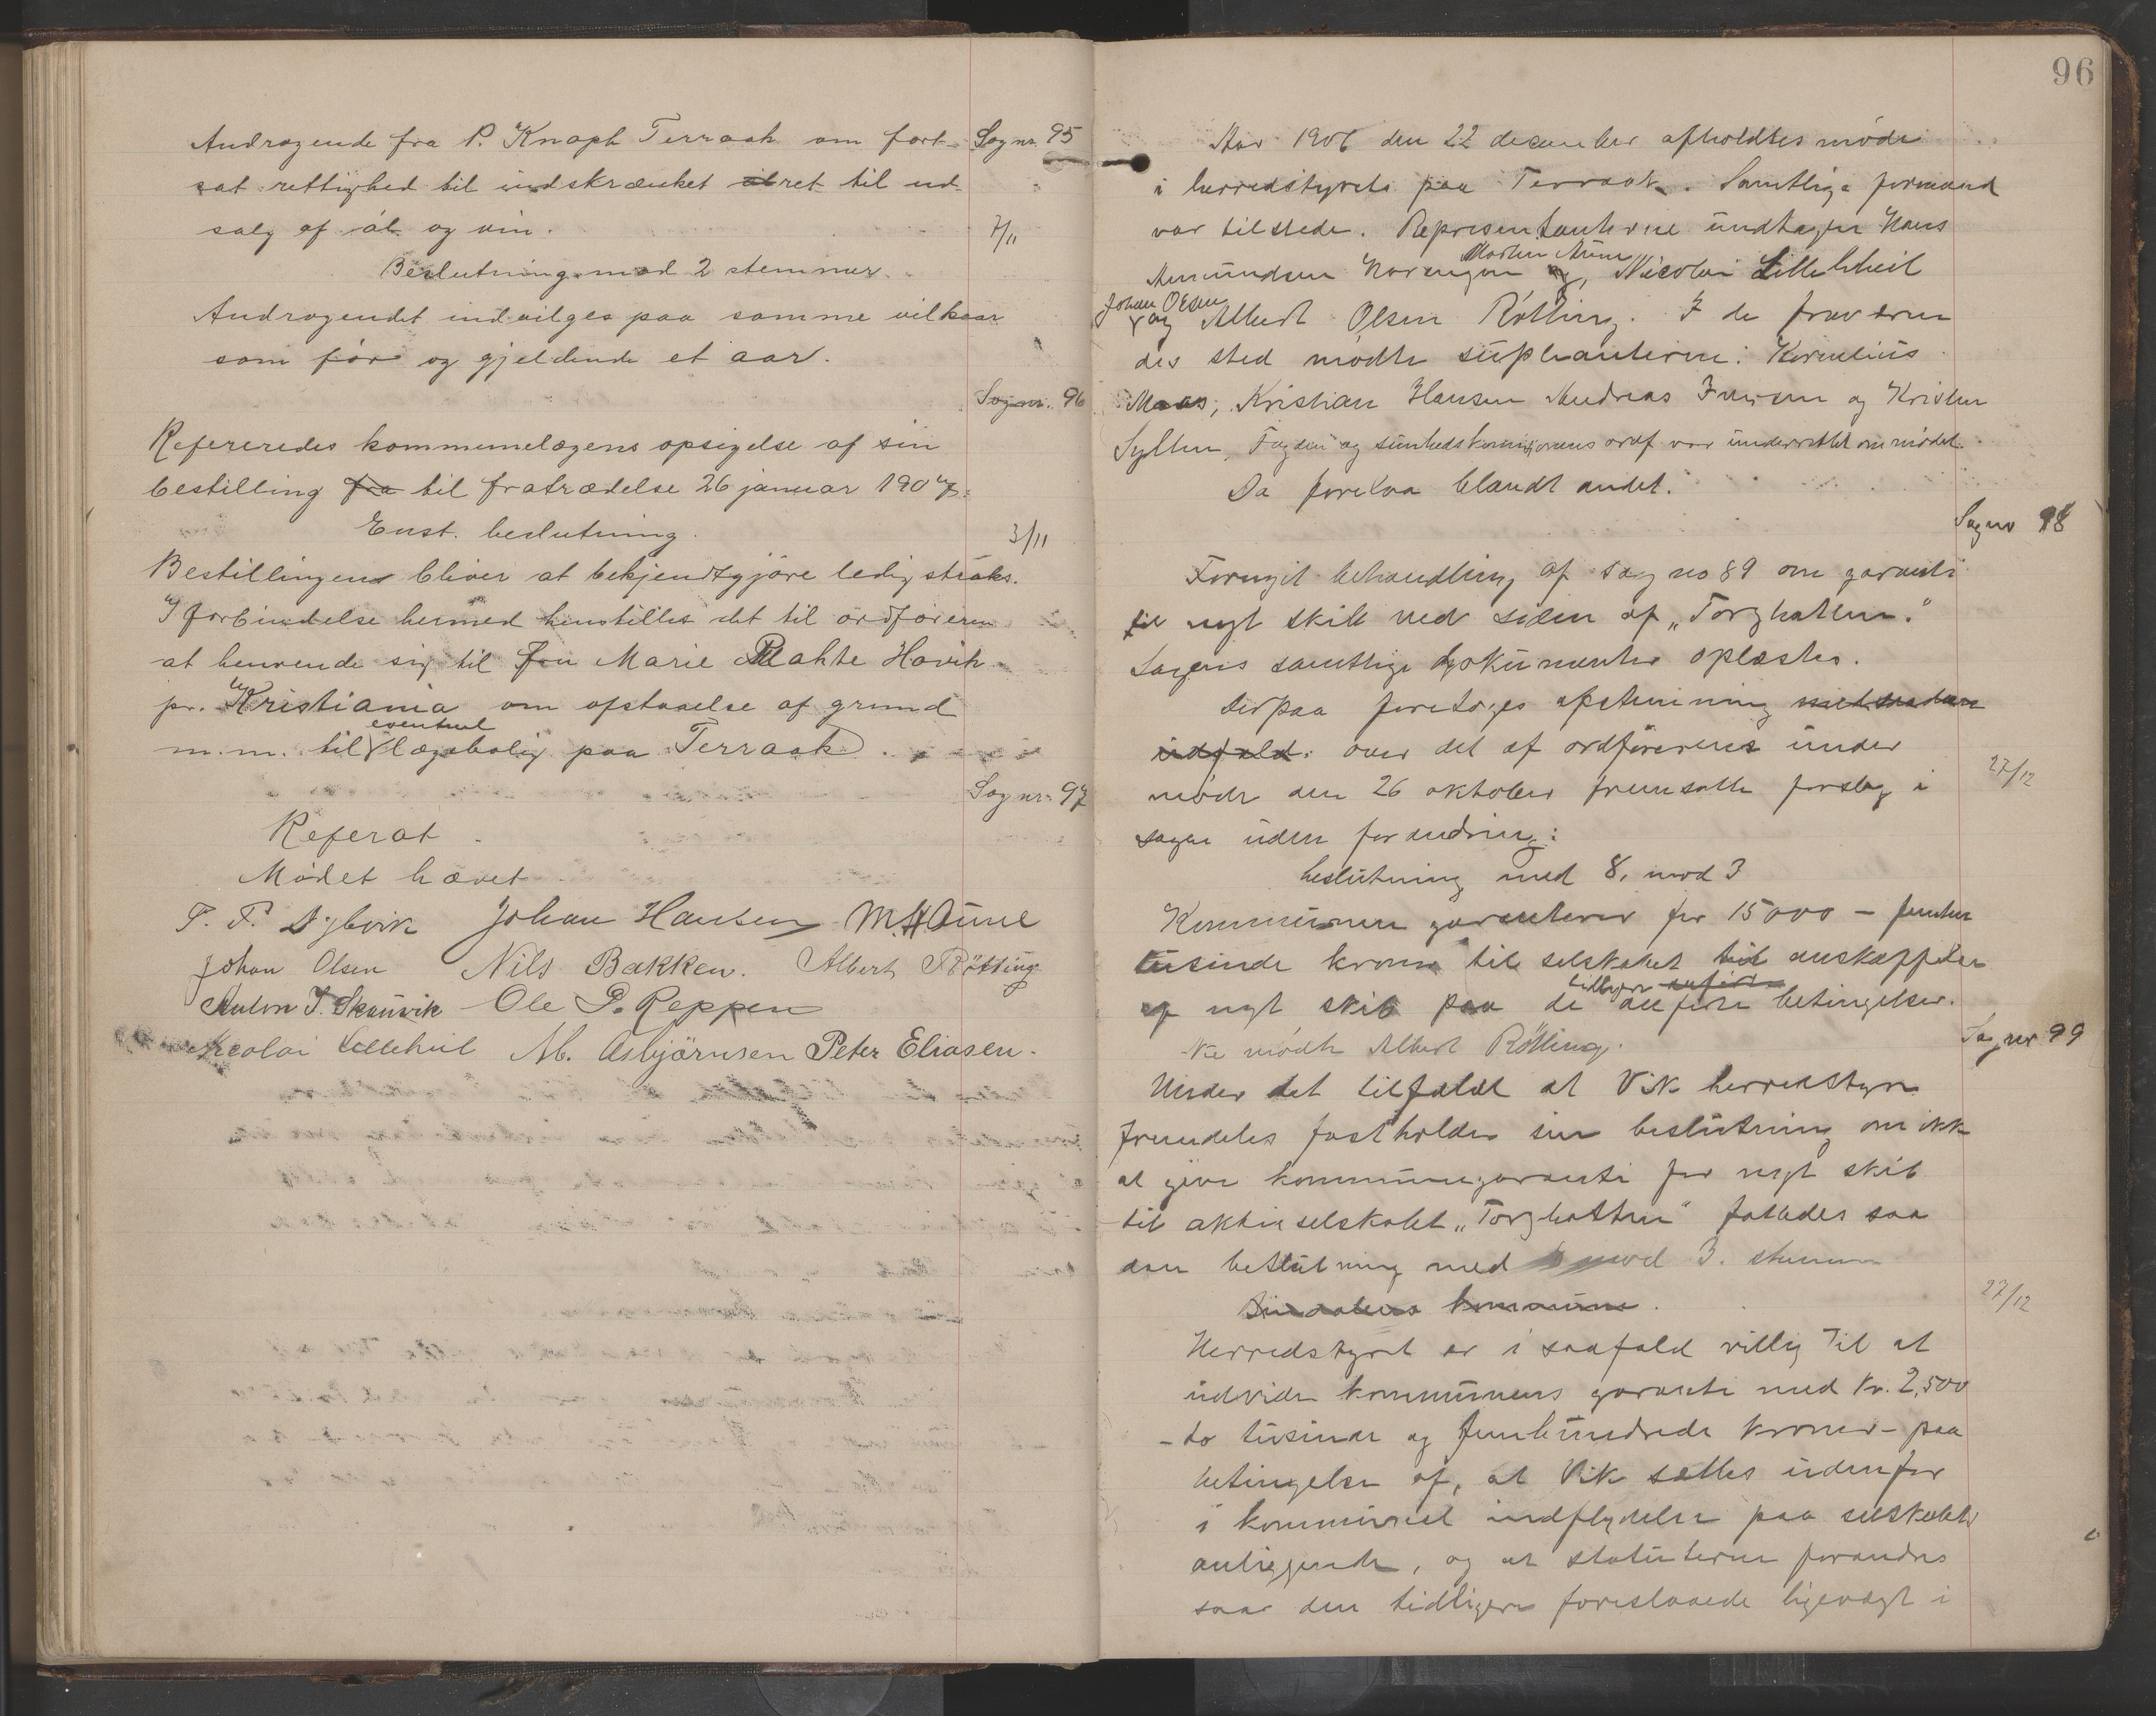 Andragende fra P. Knoph Terraak om fort- Sag nr. 95
sat rettighed til indskrænket ret til ud-
salg af øl og vin. 7/11
Beslutning mod 2 stemmer.
Andragendet indvilges paa samme vilkaar
som før og gjeldende et aar.
Sag nr. 96
Refereredes kommunelægens opsigelse af sin
bestilling fra til fratrædelse 26 januar 1907.
Enst. beslutning. 3/11
Bestillingen bliver at bekjendtgjöre ledig straks.
I forbindelse hermed henstilles det til ordföreren
at henvende sig til Fru Marie Hovik
pr. Kristiania om afstaaelse af grund
eventuel
m.m. til lægebolig paa Terraak.
Sag nr. 97
Referat.
Mödet hævet
P. P. Dybvik Johan Hansen M. H. Aune
Johan Olsen Nils Bakken. Albert Rötting
Anton J. Skauvik Ole P. Reppen
Nicolai Lillehiil M. Asbjörnsen Peter Eliasen.
96
Aar 1906 den 22 december afholdtes möde
i herredstyrets paa Terraak. Samtlige formænd
var tilstede. Representanterne undtagen Hans
Morten Aune
Amundsen Horsngen og, Nicolai Lillehheil
Johan Olsen
og Albert Olsen Rötting. I de fraværen
des sted mödte suppleanterne: Kornelius
Moaas, Kristian Hansen Andreas Iversen og Kristen
Sylten. Fogden og sunhedskomisjonens ordf var underrettet om mödet.
Da forelaa blandt andet:
Sag nr 98
Fornyit behandling af sag no 89 om garanti
til nyt skib ved siden af „Torghatten."
Sagens samtlige dokumenter oplæstes.
Derpaa foretoges afstemning med saadan
udfald: over det af ordföreren under
möde den 26 oktober fremsatte forslag i 27/12
sagen uden forandring:
beslutning med 8, mod 3
Kommunen garanterer for 15000 – femten
tusinde kroner til selskabet til anskaffelse
tidligere anförte
af nyt skib paa de anförte betingelser.
Ne mödte Albert Rötting.
Sag nr 99
Under det tilfælde at Vik herredstyre
fremdeles fastholder sin beslutning om ikke
at give kommunegaranti for nyt skib
til aktieselskabet „Torghatten" fattedes saa
dan beslutning med mod 3. stemmer
Bindalens kommune. 27/12
Herredstyret er i saafald villig til at
udvide kommunens garanti med kr. 2,500
– to tusinde og femhundrede kroner – paa
betingelse af, at Vik sættes udenfor
i kommunel indflydelse paa selskabets
anliggende, og at statuterne forandres
saa den tidligere foreslaaede ligevægt i